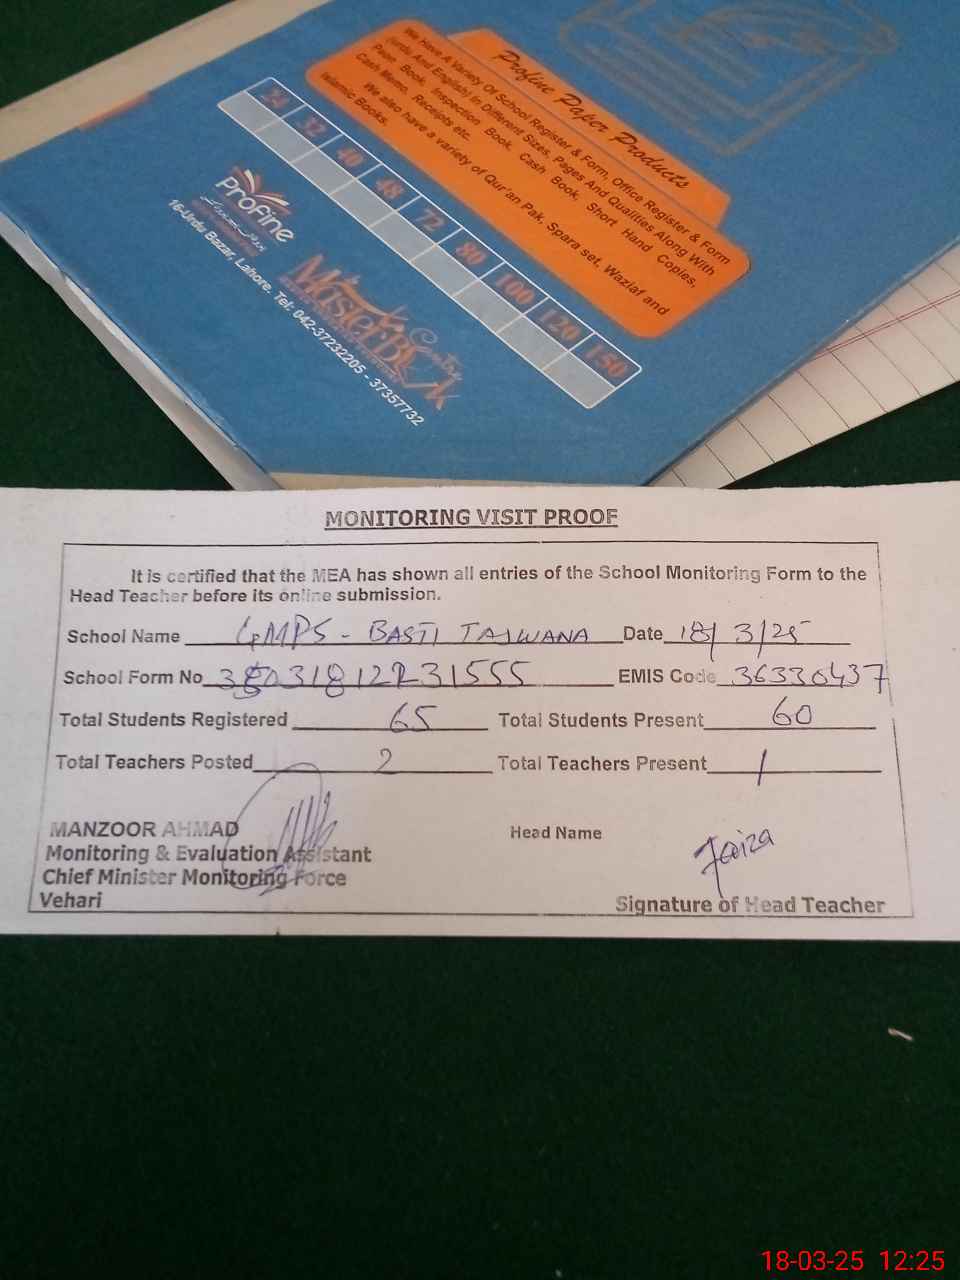 Profine Paper Products
We Have A Variety Of School Register & Form, Office Register & Form
(Urdu And English) In Different Sizes, Pages And Qualities Along With
Peon Book, Inspection Book, Cash Book, Short Hand Copies,
Cash Memo, Receipts etc.
We also have a variety of Qur'an Pak, Spara set, Waziaf and
Islamic Books.
24 32 40 48 72 80 100 120 150
Profine
Master Book Centre
16-Urdu Bazar, Lahore. Tel: 042-37232205 - 37357732
MONITORING VISIT PROOF
It is certified that the MEA has shown all entries of the School Monitoring Form to the
Head Teacher before its online submission.
School Name GMPS - BASTI TAJWANA Date 18/3/25
School Form No EMIS Code 36330437
Total Students Registered 65 Total Students Present 60
Total Teachers Posted 2 Total Teachers Present 1
MANZOOR AHMAD
Head Name
Monitoring & Evaluation Assistant
Faiza
Chief Minister Monitoring Force
Vehari
Signature of Head Teacher
18-03-25 12:25